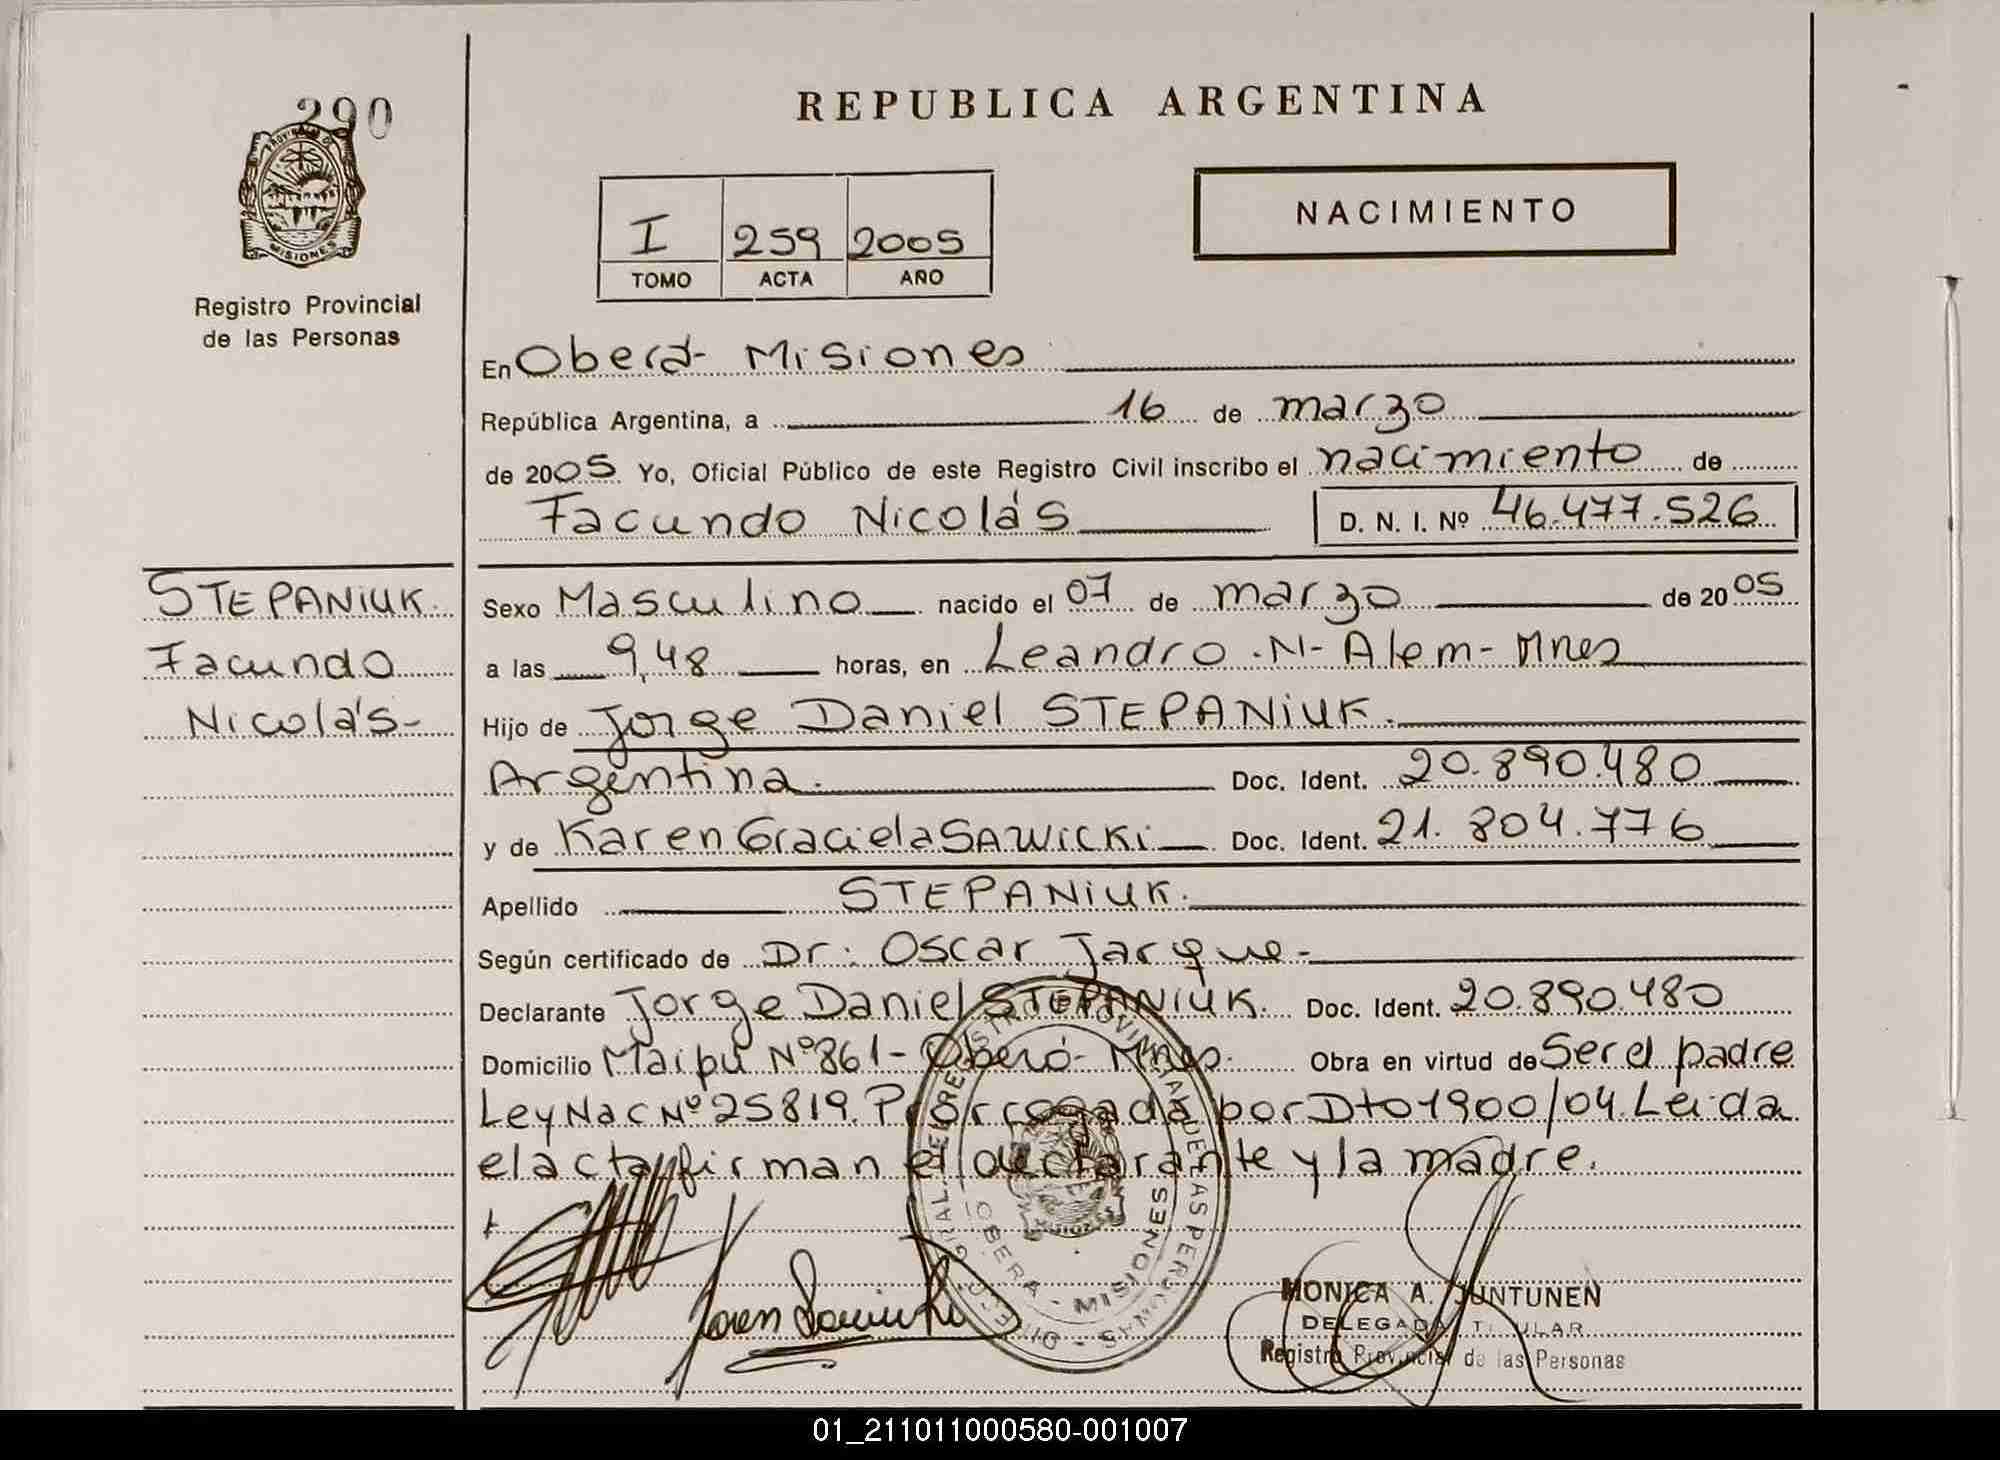 290
PROVINCIA DE
MISIONES
Registro Provincial
de las Personas
STEPANIUK.
Facundo
Nicolás-
REPUBLICA ARGENTINA
I 259 2005
TOMO ACTA AÑO
NACIMIENTO
En Oberá- Misiones
República Argentina, a 16 de marzo
de 2005 Yo, Oficial Público de este Registro Civil inscribo el nacimiento de
Facundo Nicolás D. N. I. Nº 46.477.526
Sexo Masculino nacido el 07 de marzo de 2005
a las 9,48 horas, en Leandro -N- Alem- Mnes
Hijo de Jorge Daniel STEPANIUK.
Argentina. Doc. Ident. 20.890.480
y de Karen Graciela SAWICKI Doc. Ident. 21.804.776
Apellido STEPANIUK.
Según certificado de Dr: Oscar Jarque-
Declarante Jorge Daniel STEPANIUK. Doc. Ident. 20.890.480
Domicilio Maipú Nº 861- Oberá- Mnes. Obra en virtud de Ser el padre
Ley Nac Nº 25819. Prorrogada por Dto 1900/04. Leida
el acta, firman el declarante y la madre.
Karen Sawicki
OBERA - MISIONES
MONICA A. JUNTUNEN
DELEGADA TITULAR
Registro Provincial de las Personas
01_211011000580-001007